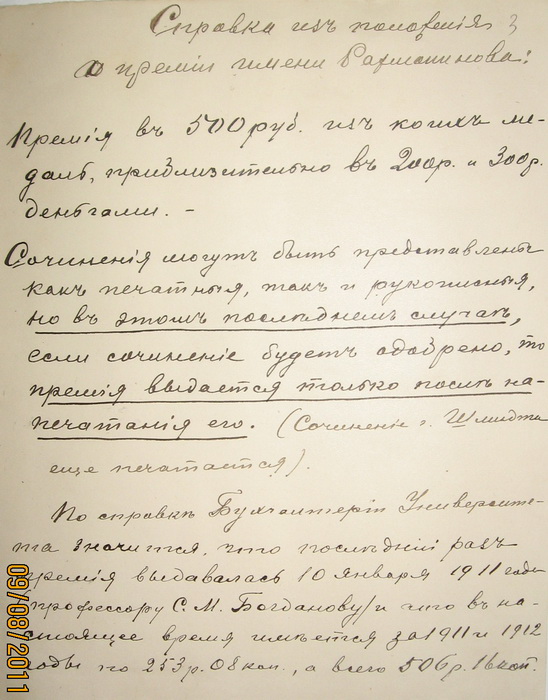 Справка изъ положенія 3
о преміи имени Рахманинова:
Премія въ 500 руб. изъ коихъ ме-
даль, приблизительно въ 200 р. и 300 р.
деньгами. -
Сочиненія могутъ быть представлены
какъ печатныя, такъ и рукописныя,
но въ этомъ послѣднемъ случаѣ,
если сочиненіе будетъ одобрено, то
премія выдается только послѣ на-
печатанія его. (Сочиненіе г. Шмидта
еще печатается).
По справкѣ Бухгалтеріи Университе-
та значится, что послѣдній разъ
премія выдавалась 10 января 1911 года
профессору С. М. Богданову / и что въ на-
стоящее время имѣется за 1911 и 1912
годы по 253 р. 08 коп., а всего 506 р. 16 коп.
09/08/2011